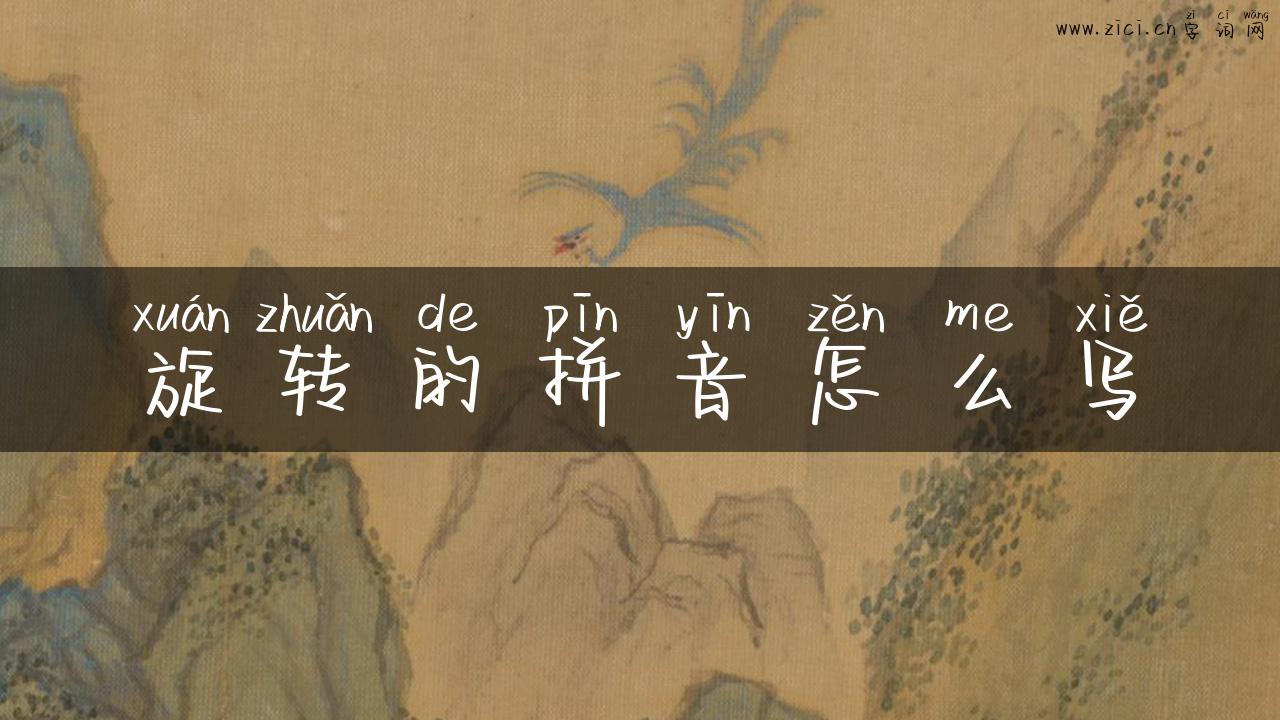 zì cí wǎng
www.zici.cn字词网
xuán zhuǎn de pīn yīn zěn me xiě
旋转的拼音怎么写